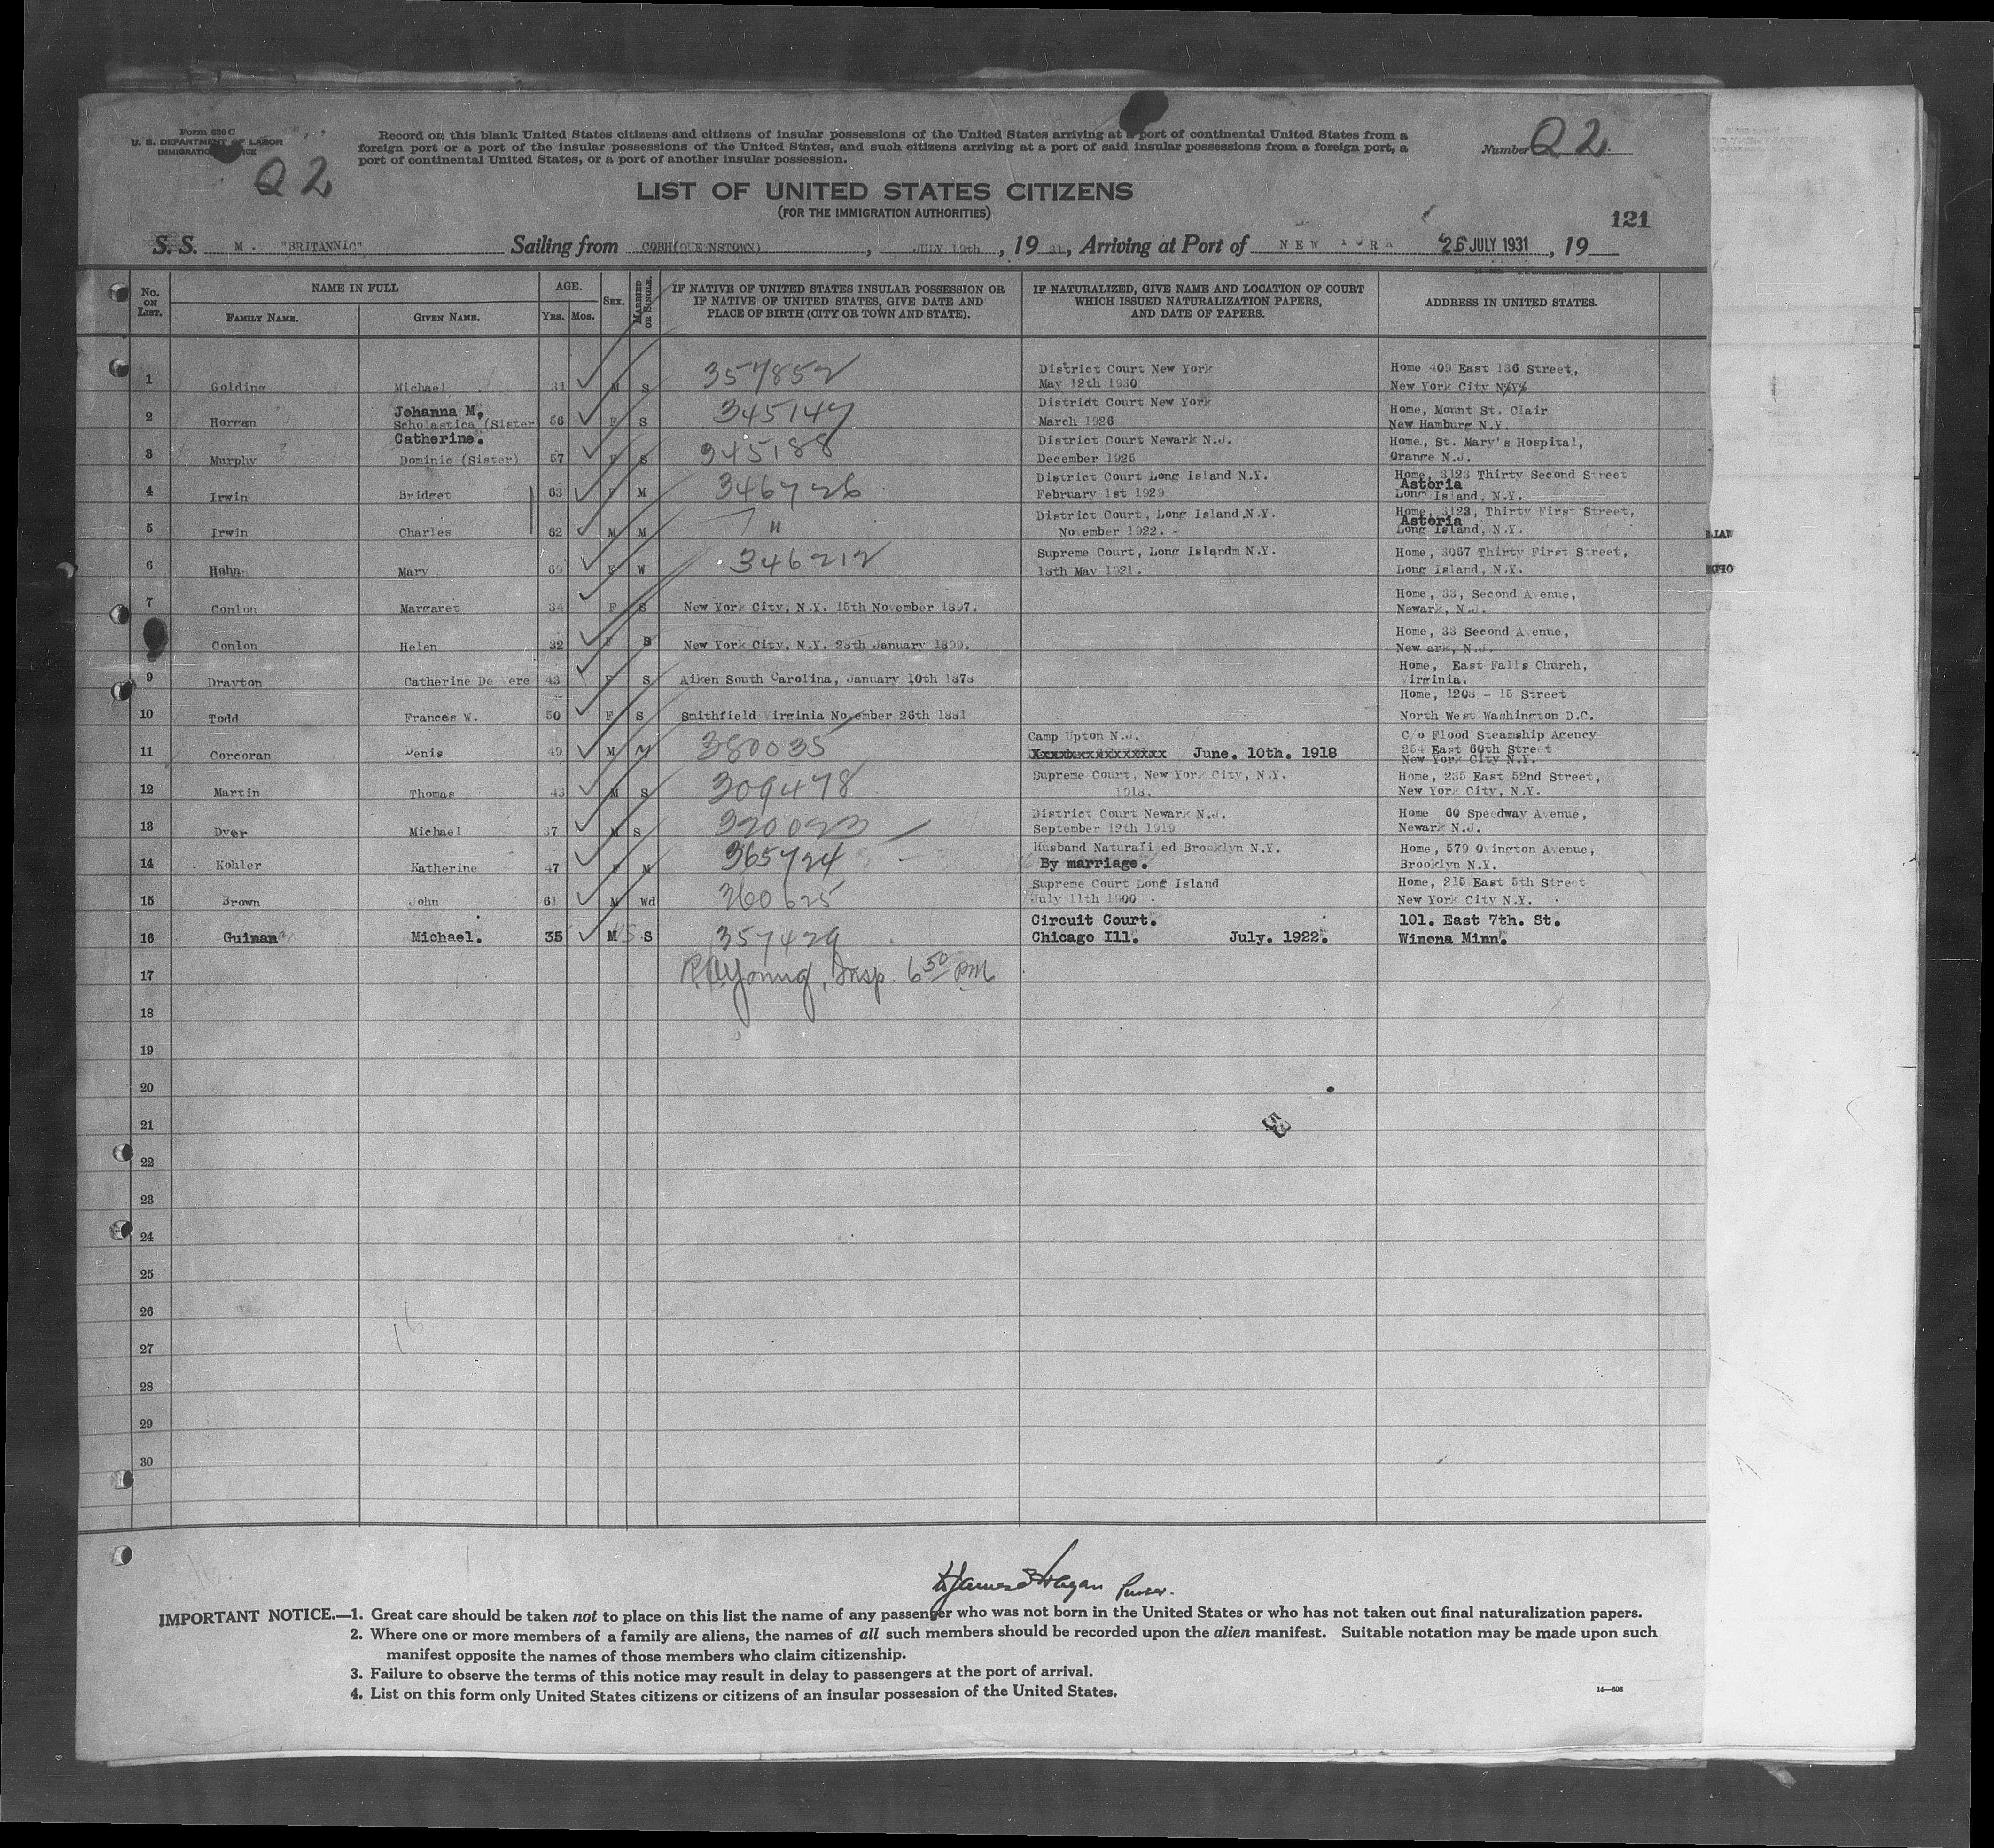 Form 630 C
U. S. DEPARTMENT OF LABOR
IMMIGRATION SERVICE
Q 2
Record on this blank United States citizens and citizens of insular possessions of the United States arriving at a port of continental United States from a
foreign port or a port of the insular possessions of the United States, and such citizens arriving at a port of said insular possessions from a foreign port, a
port of continental United States, or a port of another insular possession.
Number Q 2
LIST OF UNITED STATES CITIZENS
(FOR THE IMMIGRATION AUTHORITIES)
121
S. S. M. "BRITANNIC" Sailing from COBH(QUEENSTOWN), JULY 19th, 19 31, Arriving at Port of NEW YORK 26 JULY 1931, 19
No. ON LIST. NAME IN FULL AGE. SEX. MARRIED OR SINGLE. IF NATIVE OF UNITED STATES INSULAR POSSESSION OR IF NATIVE OF UNITED STATES, GIVE DATE AND PLACE OF BIRTH (CITY OR TOWN AND STATE). IF NATURALIZED, GIVE NAME AND LOCATION OF COURT WHICH ISSUED NATURALIZATION PAPERS, AND DATE OF PAPERS. ADDRESS IN UNITED STATES.
FAMILY NAME. GIVEN NAME. YRS. MOS.
District Court New York Home 409 East 136 Street,
1 Golding Michael 31 M S 357852 May 12th 1930 New York City N.Y.
Johanna M. Distridt Court New York Home, Mount St. Clair
2 Horgan Scholastica (Sister 56 F S 345147 March 1926 New Hamburg N.Y.
Catherine. District Court Newark N.J. Home, St. Mary's Hospital,
3 Murphy Dominic (Sister) 57 F S 345188 December 1925 Orange N.J.
District Court Long Island N.Y. Home, 3123 Thirty Second Street
Astoria
4 Irwin Bridget 63 F M 346726 February 1st 1929 Long Island, N.Y.
District Court, Long Island,N.Y. Home, 3123, Thirty First Street,
Astoria
5 Irwin Charles 62 M M " November 1922. - Long Island, N.Y.
Supreme Court, Long Islandm N.Y. Home, 3067 Thirty First Street,
6 Hahn Mary 60 F W 346212 18th May 1921. Long Island, N.Y.
Home, 33, Second Avenue,
7 Conlon Margaret 34 F S New York City, N.Y. 15th November 1897. Newark, N.J.
Home, 33 Second Avenue,
Conlon Helen 32 F S New York City, N.Y. 28th January 1899. New ark, N.J.
Home, East Falls Church,
9 Drayton Catherine De Vere 43 F S Aiken South Carolina, January 10th 1878 Virginia.
Home, 1208 - 15 Street
10 Todd Frances W. 50 F S Smithfield Virginia November 26th 1881 North West Washington D.C.
Camp Upton N.J. C/o Flood Steamship Agency
11 Corcoran Denis 49 M 380035 June. 10th. 1918 254 East 60th Street
New York City N.Y.
Supreme Court, New York City, N.Y. Home, 235 East 52nd Street,
12 Martin Thomas 43 M S 309478 1918. New York City, N.Y.
District Court Newark N.J. Home 60 Speedway Avenue,
13 Dyer Michael 37 M S 320023 September 12th 1919 Newark N.J.
Husband Naturafi ed Brooklyn N.Y. Home, 579 Ovington Avenue,
14 Kohler Katherine 47 F M 365724 By marriage. Brooklyn N.Y.
Supreme Court Long Island Home, 215 East 5th Street
15 Brown John 61 M Wd 360625 July 11th 1900 New York City N.Y.
Circuit Court. 101. East 7th. St.
16 Guinan Michael. 35 M S 357429 Chicago Ill. July. 1922. Winona Minn.
17 Young, Insp. 6 50 PM
18
19
20
21
53
22
23
24
25
26
16
27
28
29
30
Purser.
IMPORTANT NOTICE.—1. Great care should be taken not to place on this list the name of any passenger who was not born in the United States or who has not taken out final naturalization papers.
2. Where one or more members of a family are aliens, the names of all such members should be recorded upon the alien manifest. Suitable notation may be made upon such
manifest opposite the names of those members who claim citizenship.
3. Failure to observe the terms of this notice may result in delay to passengers at the port of arrival.
4. List on this form only United States citizens or citizens of an insular possession of the United States.
14—606